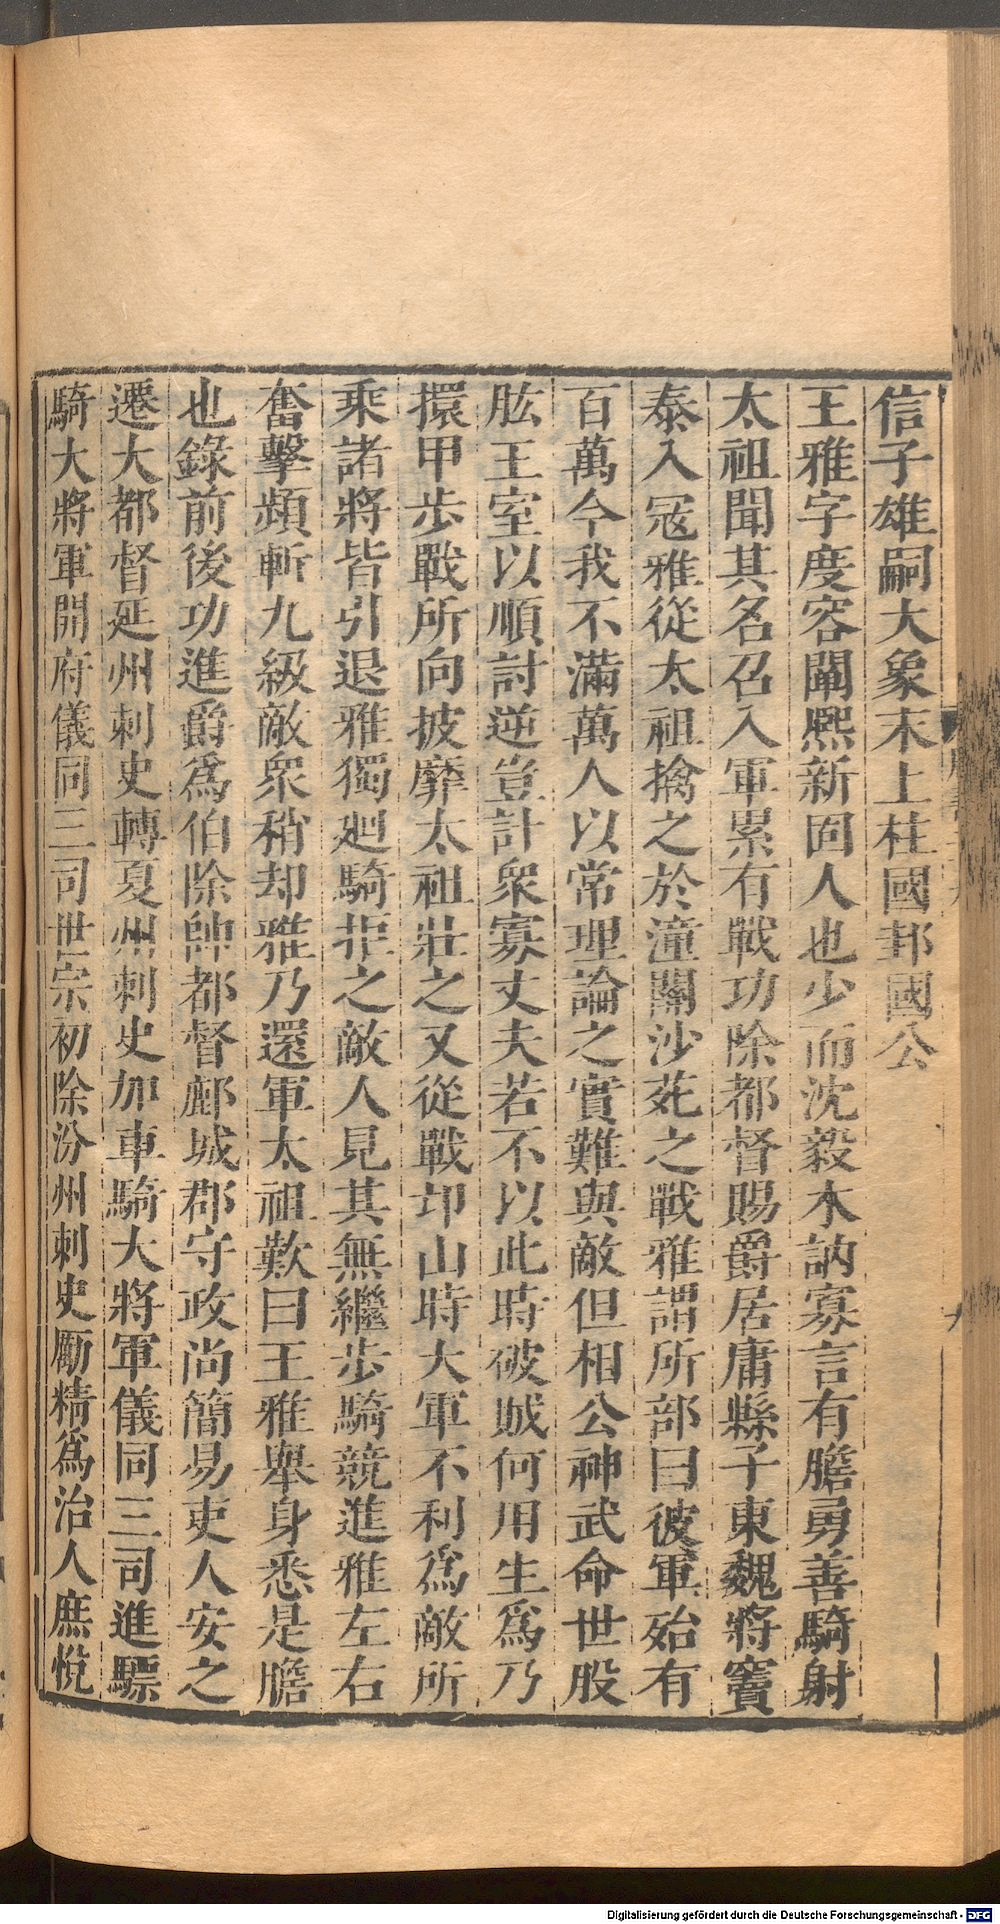 信子雄嗣大象末上柱國邽國公
王雅字度容闡熙新固人也少而沈毅木訥寡言有膽勇善騎射
太祖聞其名召入軍累有戰功除都督賜爵居庸縣子東魏將竇
泰入寇雅從太祖擒之於潼關沙苑之戰雅謂所部曰彼軍殆有
百萬今我不滿萬人以常理論之實難與敵但相公神武命世股
肱王室以順討逆豈計衆寡丈夫若不以此時破賊何用生爲乃
擐甲步戰所向披靡太祖壯之又從戰邙山時大軍不利爲敵所
乘諸將皆引退雅獨廻騎拒之敵人見其無繼步騎競進雅左右
奮擊頻斬九級敵衆稍却雅乃還軍太祖歎曰王雅舉身悉是膽
也錄前後功進爵爲伯除帥都督鄜城郡守政尚簡易吏人安之
遷大都督延州刺史轉夏州刺史加車騎大將軍儀同三司進驃
騎大將軍開府儀同三司世宗初除汾州刺史勵精爲治人庶悅
Digitalisierung gefördert durch die Deutsche Forschungsgemeinschaft - DFG